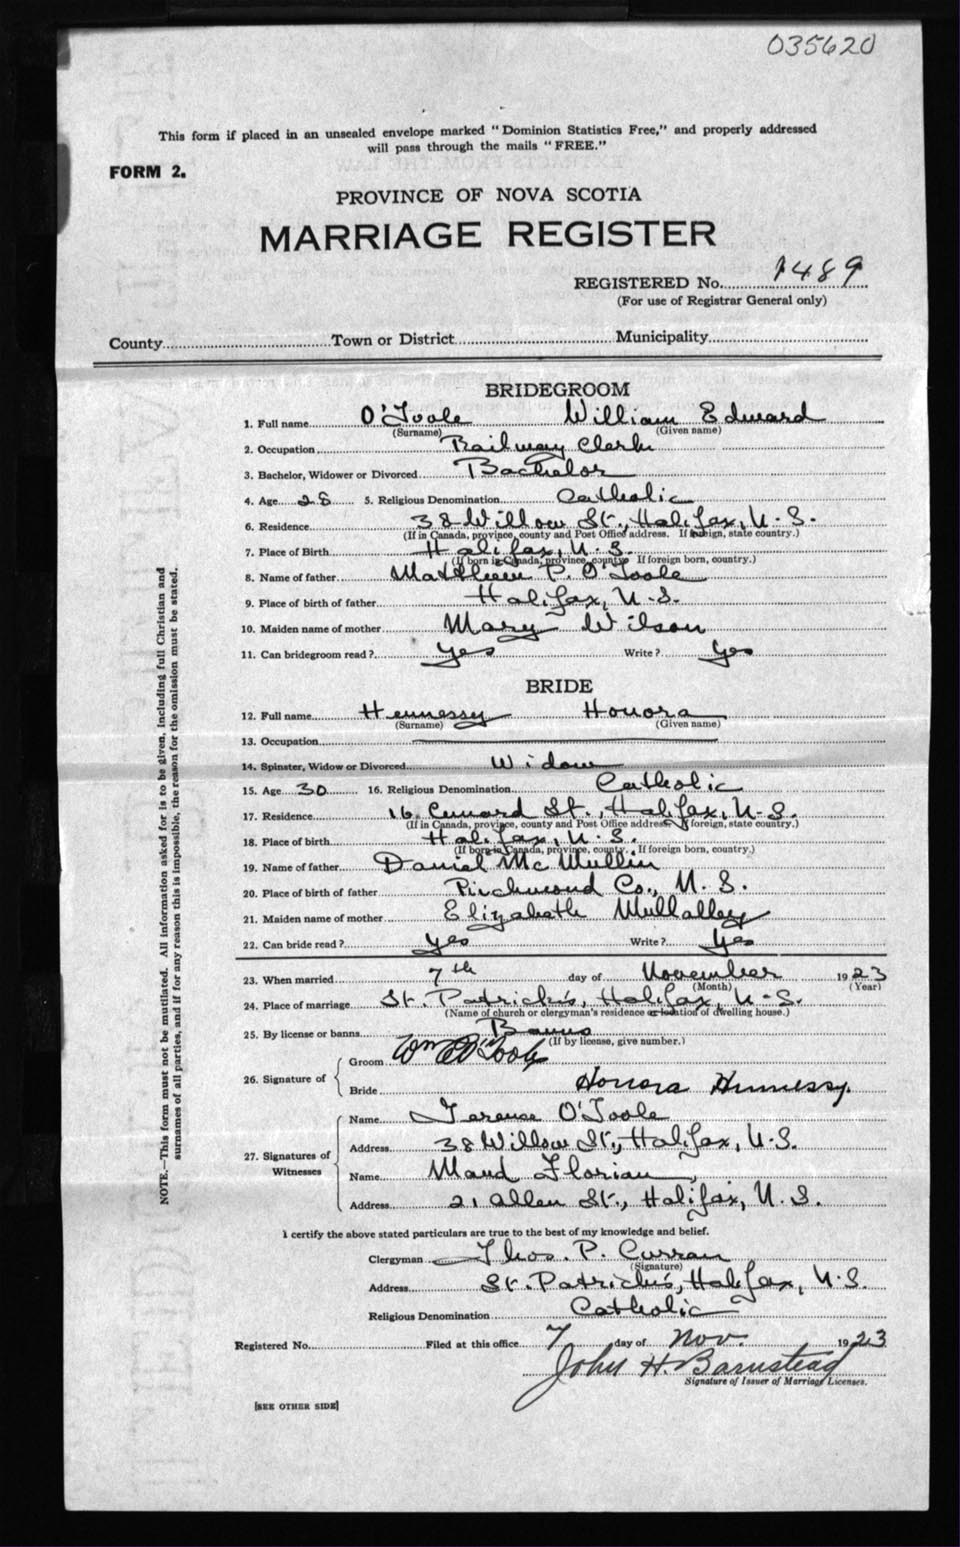 035620
This form if placed in an unsealed envelope marked "Dominion Statistics Free," and properly addressed
will pass through the mails "FREE."
FORM 2.
PROVINCE OF NOVA SCOTIA
MARRIAGE REGISTER
REGISTERED No. 1489
(For use of Registrar General only)
County Town or District Municipality
BRIDEGROOM
1. Full name O'Toole William Edward
(Surname) (Given name)
2. Occupation Railway Clerk
3. Bachelor, Widower or Divorced Bachelor
4. Age 28 5. Religious Denomination Catholic
6. Residence 38 Willow St., Halifax, N.S.
(If in Canada, province, county and Post Office address. If foreign, state country.)
7. Place of Birth Halifax, N.S.
(If born in Canada, province, county. If foreign born, country.)
8. Name of father Matthew P. O'Toole
9. Place of birth of father Halifax, N.S.
10. Maiden name of mother Mary Wilson
11. Can bridegroom read? Yes Write? Yes
BRIDE
12. Full name Hennessy Honora
(Surname) (Given name)
13. Occupation
14. Spinster, Widow or Divorced Widow
15. Age 30 16. Religious Denomination Catholic
17. Residence 16 Cunard St., Halifax, N.S.
(If in Canada, province, county and Post Office address. If foreign, state country.)
18. Place of birth Halifax, N.S.
(If born in Canada, province, county. If foreign born, country.)
19. Name of father Daniel McMullin
20. Place of birth of father Richmond Co., N.S.
21. Maiden name of mother Elizabeth Mullalley
22. Can bride read? Yes Write? Yes
23. When married 7th day of November 1923
(Month) (Year)
24. Place of marriage St. Patrick's, Halifax, N.S.
(Name of church or clergyman's residence or location of dwelling house.)
25. By license or banns Banns
(If by license, give number.)
26. Signature of
Groom Wm E O'Toole
Bride Honora Hennessy.
27. Signatures of Witnesses
Name Terence O'Toole
Address 38 Willow St., Halifax, N.S.
Name Maud Florian
Address 21 Allen St., Halifax, N.S.
I certify the above stated particulars are true to the best of my knowledge and belief.
Clergyman Thos. P. Curran
(Signature)
Address St. Patrick's, Halifax, N.S.
Religious Denomination Catholic
Registered No. Filed at this office 7 day of Nov. 1923
John H. Barnstead
Signature of Issuer of Marriage Licenses.
[SEE OTHER SIDE]
NOTE.—This form must not be mutilated. All information asked for is to be given, including full Christian and
surnames of all parties, and if for any reason this is impossible, the reason for the omission must be stated.